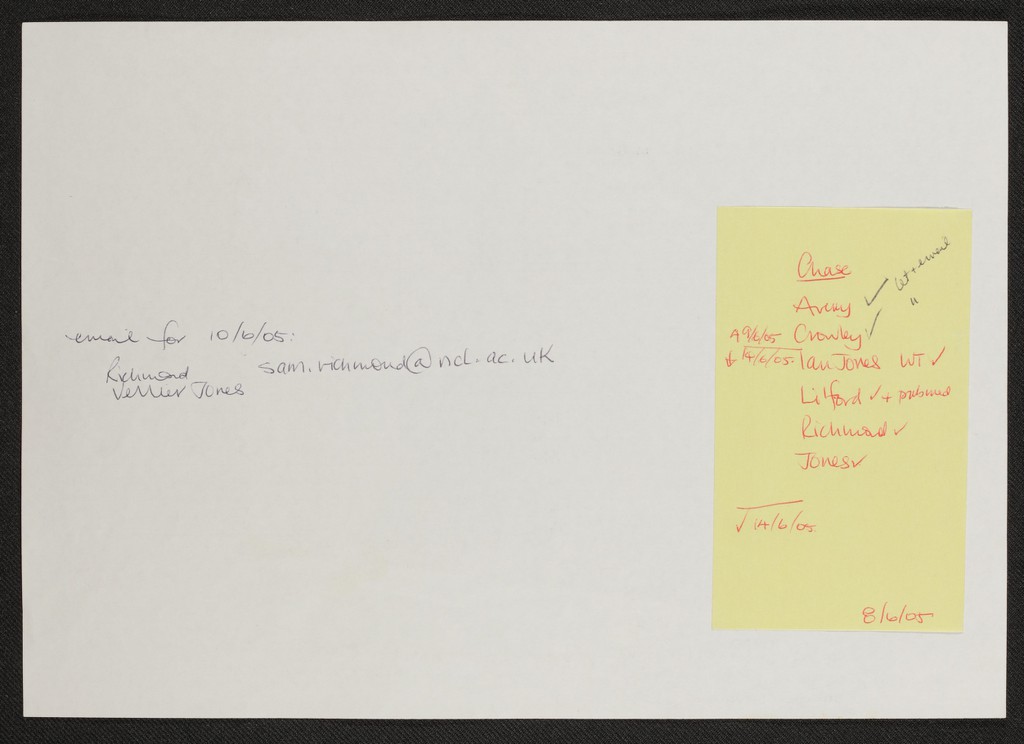 email for 10/6/05:
Richmond sam.richmond@ncl.ac.uk
Verrier Jones
Chase
Avery ✓ let + email
9/6/05 Crowley ✓ "
14/6/05. Ian Jones WT ✓
Lilford ✓ +
Richmond ✓
Jones ✓
✓ 14/6/05.
8/6/05